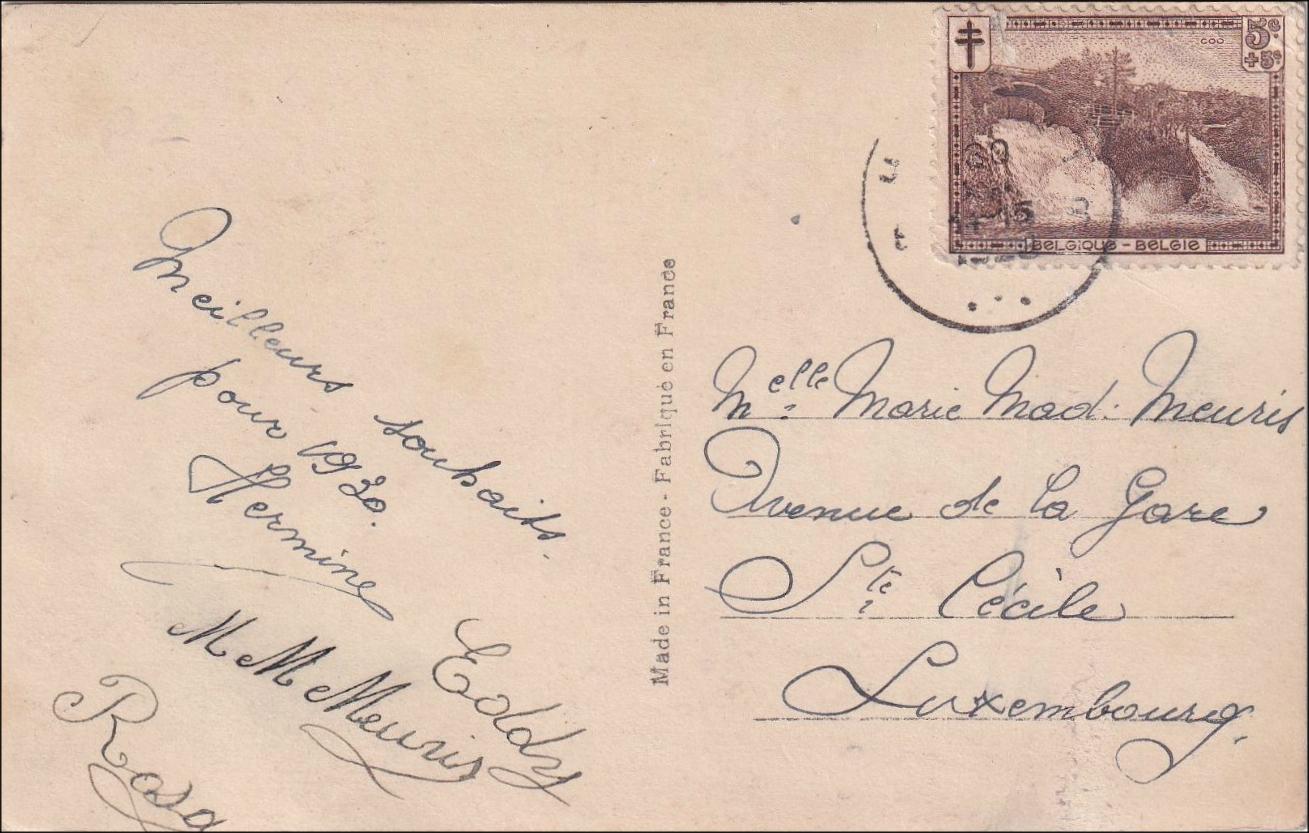 Meilleurs souhaits.
pour 1930.
Hermine
Eddy
M M Meuris
Rosa
Made in France - Fabriqué en France
COO
5c.
+5c
BELGIQUE - BELGIE
14-15
Melle Marie Mad. Meuris
Avenue de la Gare
Ste Cécile
Luxembourg.